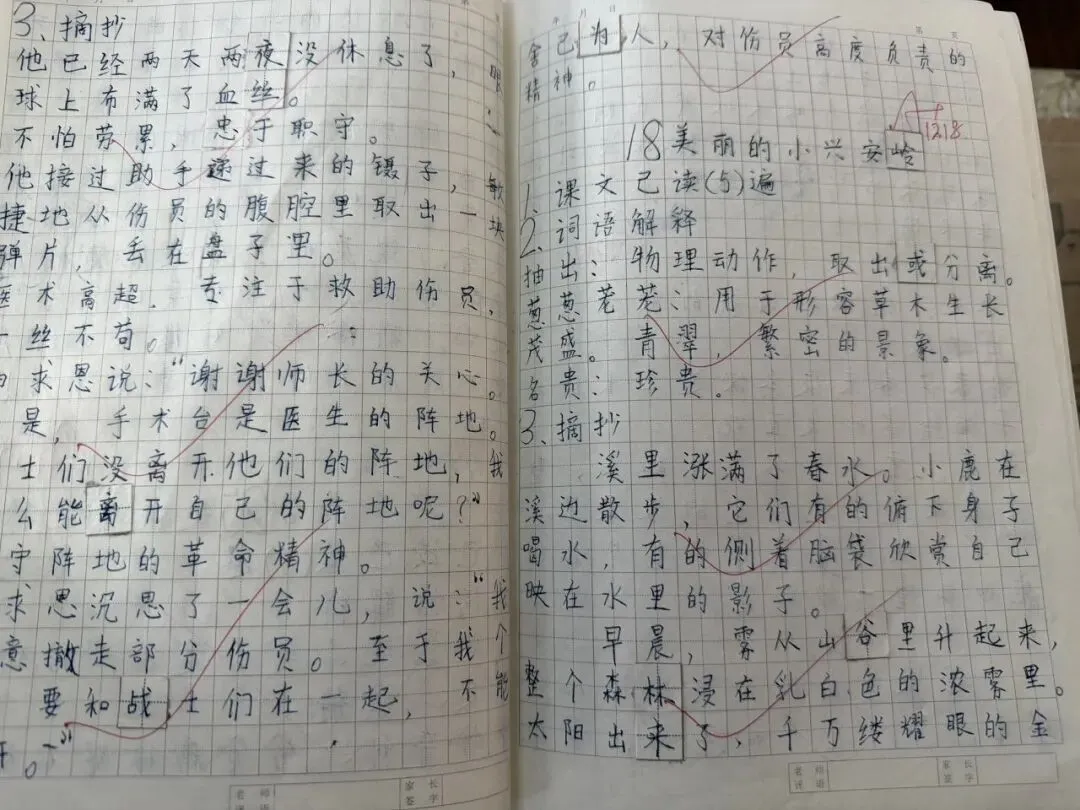 3、摘抄
他已经两天两夜没休息了，眼
球上布满了血丝。
不怕劳累，忠于职守。
他接过助手递过来的镊子，敏
捷地从伤员的腹腔里取出一块
弹片，丢在盘子里。
医术高超，专注于救助伤员，
一丝不苟。
求恩说：“谢谢师长的关心。
是，手术台是医生的阵地。
士们没离开他们的阵地，我
么能离开自己的阵地呢？”
守阵地的革命精神。
求恩沉思了一会儿，说：“我
意撤走部分伤员。至于我个
要和战士们在一起，不能
开。”
老师评语
家长签字
年 月 日
第 页
舍己为人，对伤员高度负责的
精神。
1218
18美丽的小兴安岭
1、课文已读(5)遍
2、词语解释
抽出：物理动作，取出或分离。
葱葱茏茏：用于形容草木生长
茂盛。青翠，繁密的景象。
名贵：珍贵。
3、摘抄
溪里涨满了春水。小鹿在
溪边散步，它们有的俯下身子
喝水，有的侧着脑袋欣赏自己
映在水里的影子。
早晨，雾从山谷里升起来，
整个森林浸在乳白色的浓雾里。
太阳出来了，千万缕耀眼的金
老师评语
家长签字